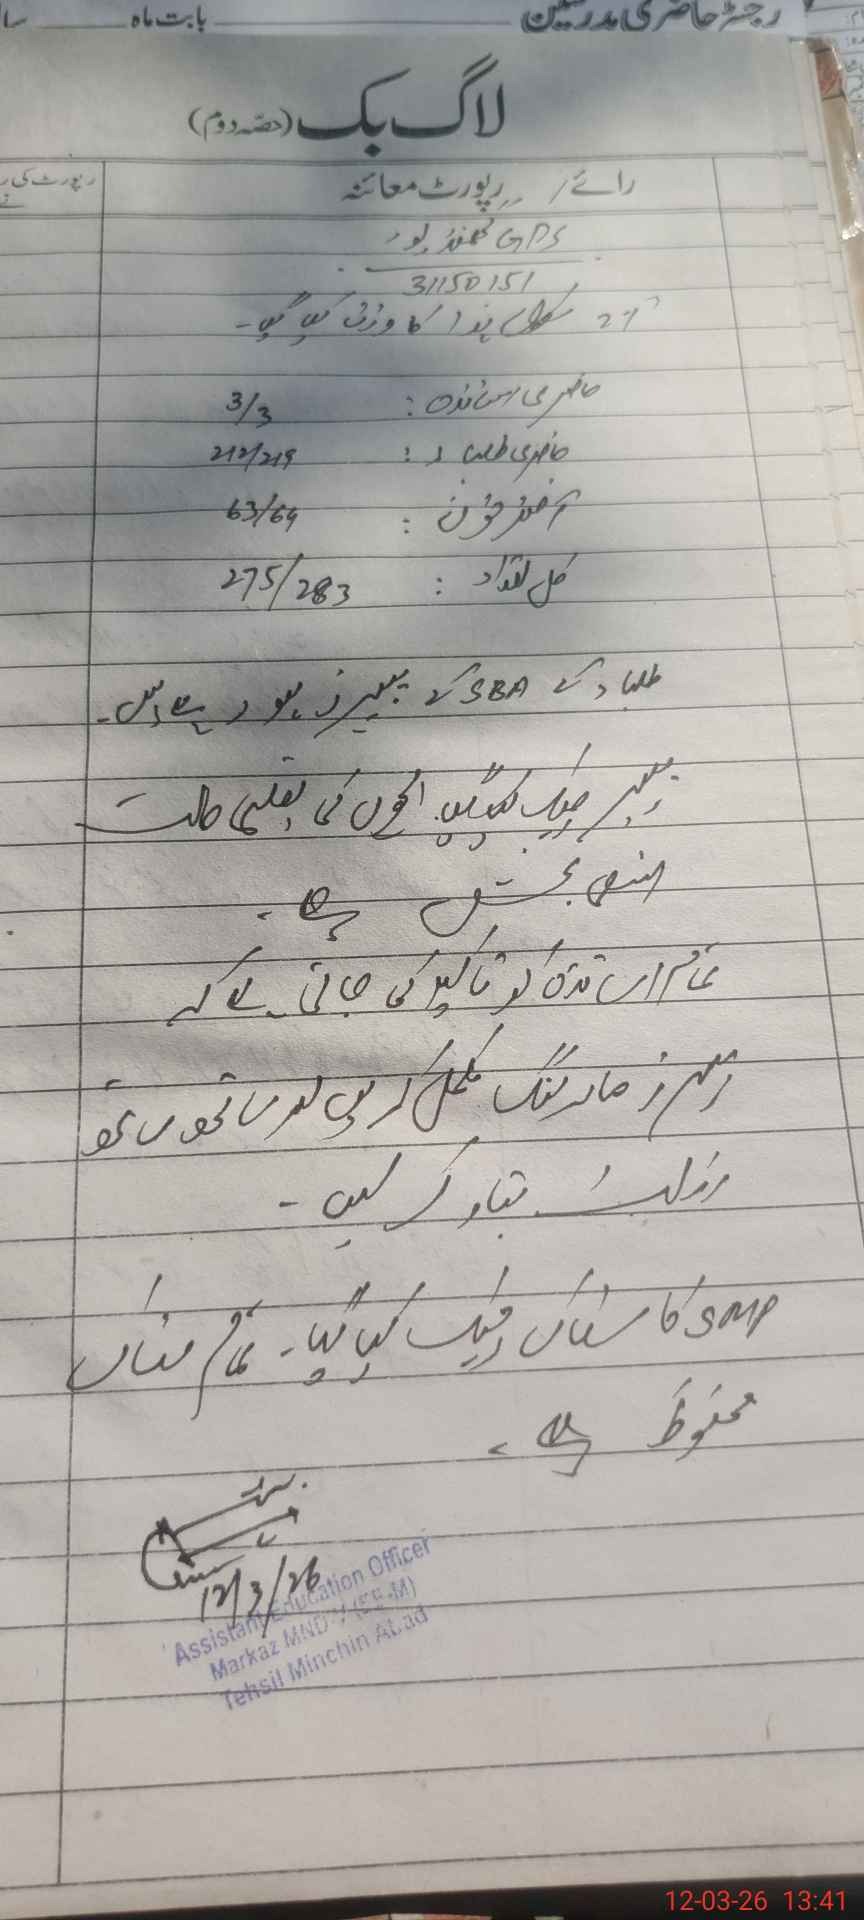 رجسٹر حاضری مدرسین بابت ماہ
لاگ بک (حصہ دوم)
رائے / رپورٹ معائنہ
رپورٹ کی
GPS
31150151
سکول ہذا کا وزٹ کیا گیا۔
حاضری اساتذہ : 3/3
حاضری طلباء : 212/219
: 63/64
کل تعداد : 275/283
طلباء کے SBA کے پیپرز ہو رہے ہیں۔
پیپر چیک کیے گئے۔ بچوں کی تعلیمی حالت
تسلی بخش ہے۔
تمام اساتذہ کو تاکید کی جاتی ہے کہ
پیپرز مارکنگ مکمل کریں اور ساتھ ساتھ
رزلٹ تیار کر لیں۔
SMP کا سٹاک چیک کیا گیا۔ تمام سٹاک
محفوظ ہے۔
12/3/26
Assistant Education Officer
Markaz
Tehsil Minchin Abad
12-03-26 13:41